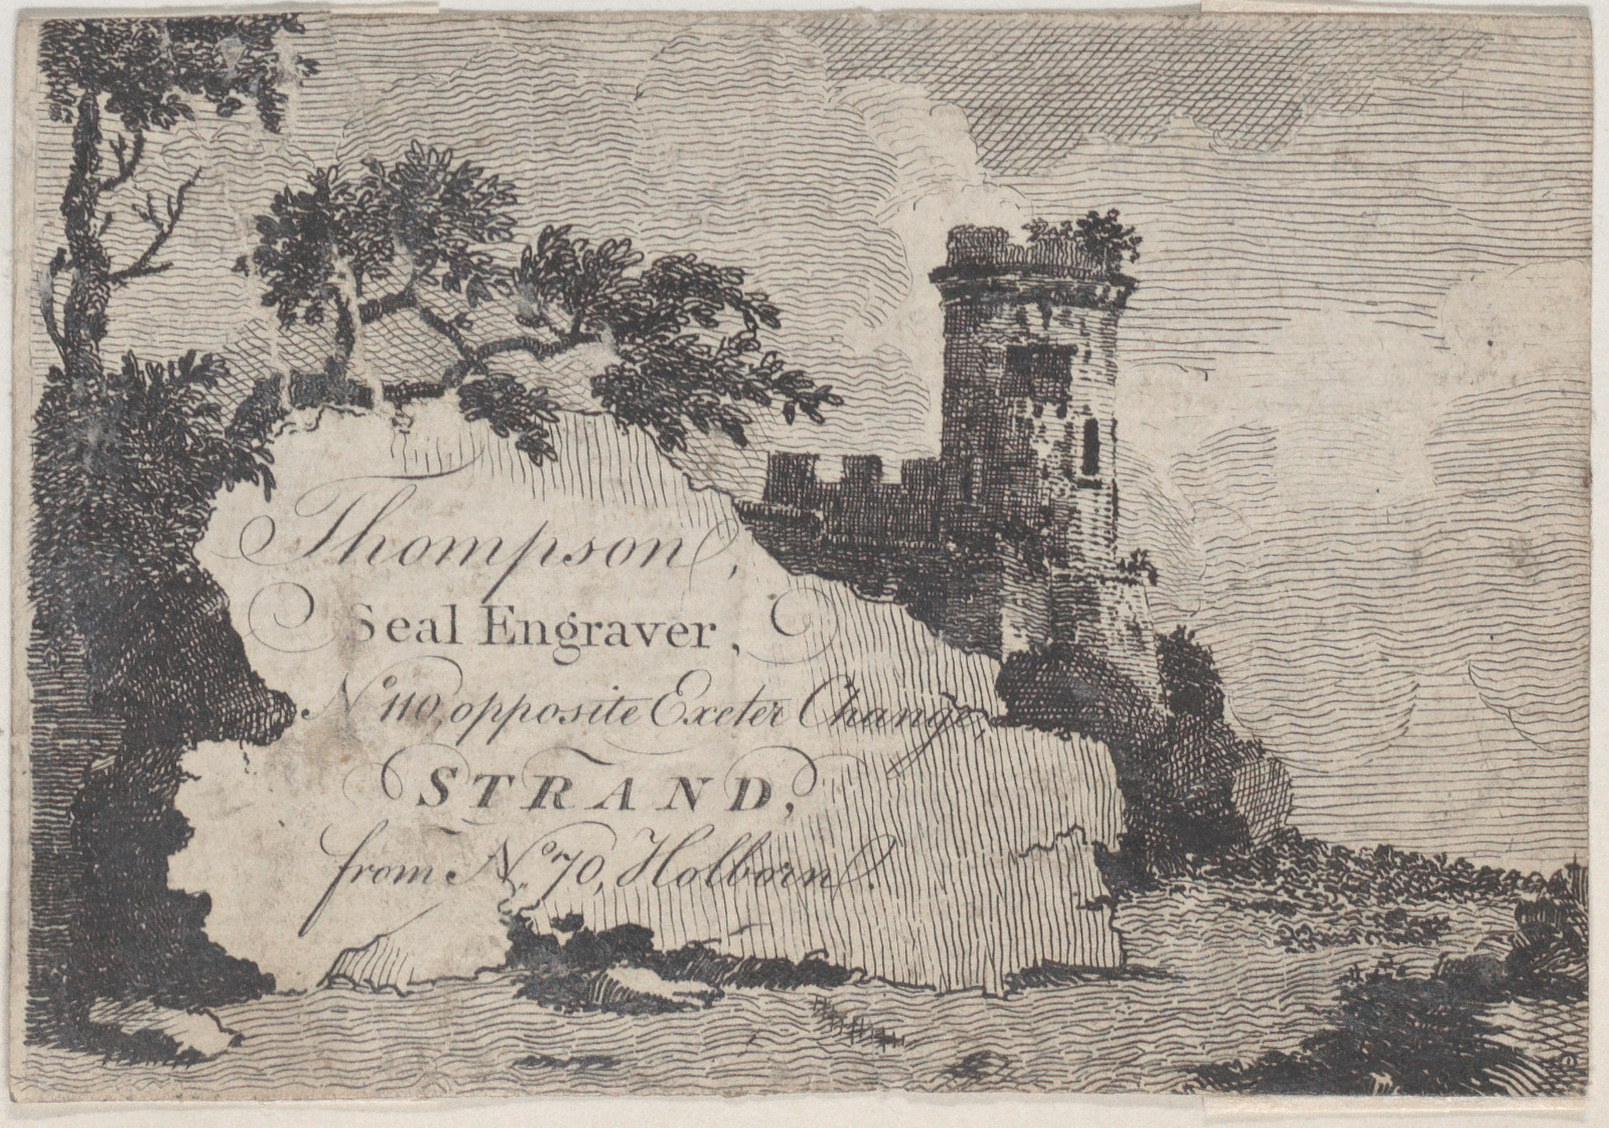 Thompson,
Seal Engraver,
No. 110, opposite Exeter Change,
STRAND,
from No. 70, Holborn.